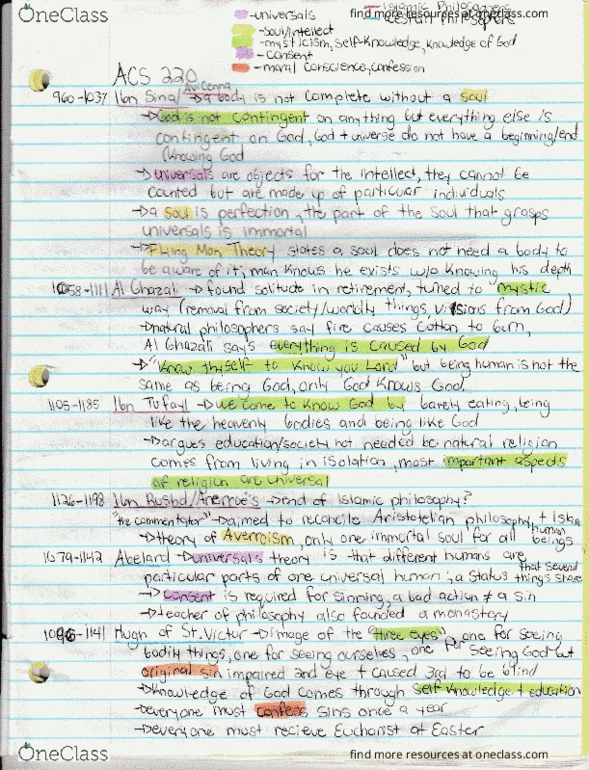 OneClass
find more resources at oneclass.com
Islamic Philosophers
-universals
-soul/intellect
-mysticism, self-knowledge, knowledge of God
-consent
-moral conscience, confession
ACS 220
Avicenna
960-1037 Ibn Sina/ → a body is not complete without a soul
→ God is not contingent on anything but everything else is
contingent on God, God + universe do not have a beginning/end
(knowing God
→ universals are objects for the intellect, they cannot be
counted but are made up of particular individuals
→ a soul is perfection, the part of the soul that grasps
universals is immortal
→ Flying Man Theory states a soul does not need a body to
be aware of it; man knows he exists w/o knowing his depth
1058-1111 Al Ghazali → found solitude in retirement, turned to "mystic
way (removal from society/worldly things, visions from God)
→ natural philosophers say fire causes cotton to burn,
Al Ghazali says everything is caused by God
→ "Know thyself to know you Lord" but being human is not the
same as being God, only God knows God
1105-1185 Ibn Tufayl → we come to know God by barely eating, being
like the heavenly bodies and being like God
→ argues education/society not needed bc natural religion
comes from living in isolation, most important aspects
of religion are universal
1126-1198 Ibn Rushd/Averroe's → end of Islamic philosophy?
"the commentator" → aimed to reconcile Aristotelian philosophy + Islam
→ theory of Averroism, only one immortal soul for all human
beings
1079-1142 Abelard → universals theory is that different humans are
particular parts of one universal human; a status that several
things share
→ consent is required for sinning, a bad action ≠ a sin
→ teacher of philosophy also founded a monastory
1096-1141 Hugh of St. Victur → image of the "three eyes", one for seeing
bodily things, one for seeing ourselves, one for seeing God but
original sin impaired 2nd eye + caused 3rd to be blind
→ knowledge of God comes through self knowledge + education
→ everyone must confess sins once a year
→ everyone must recieve Eucharist at Easter
OneClass
find more resources at oneclass.com